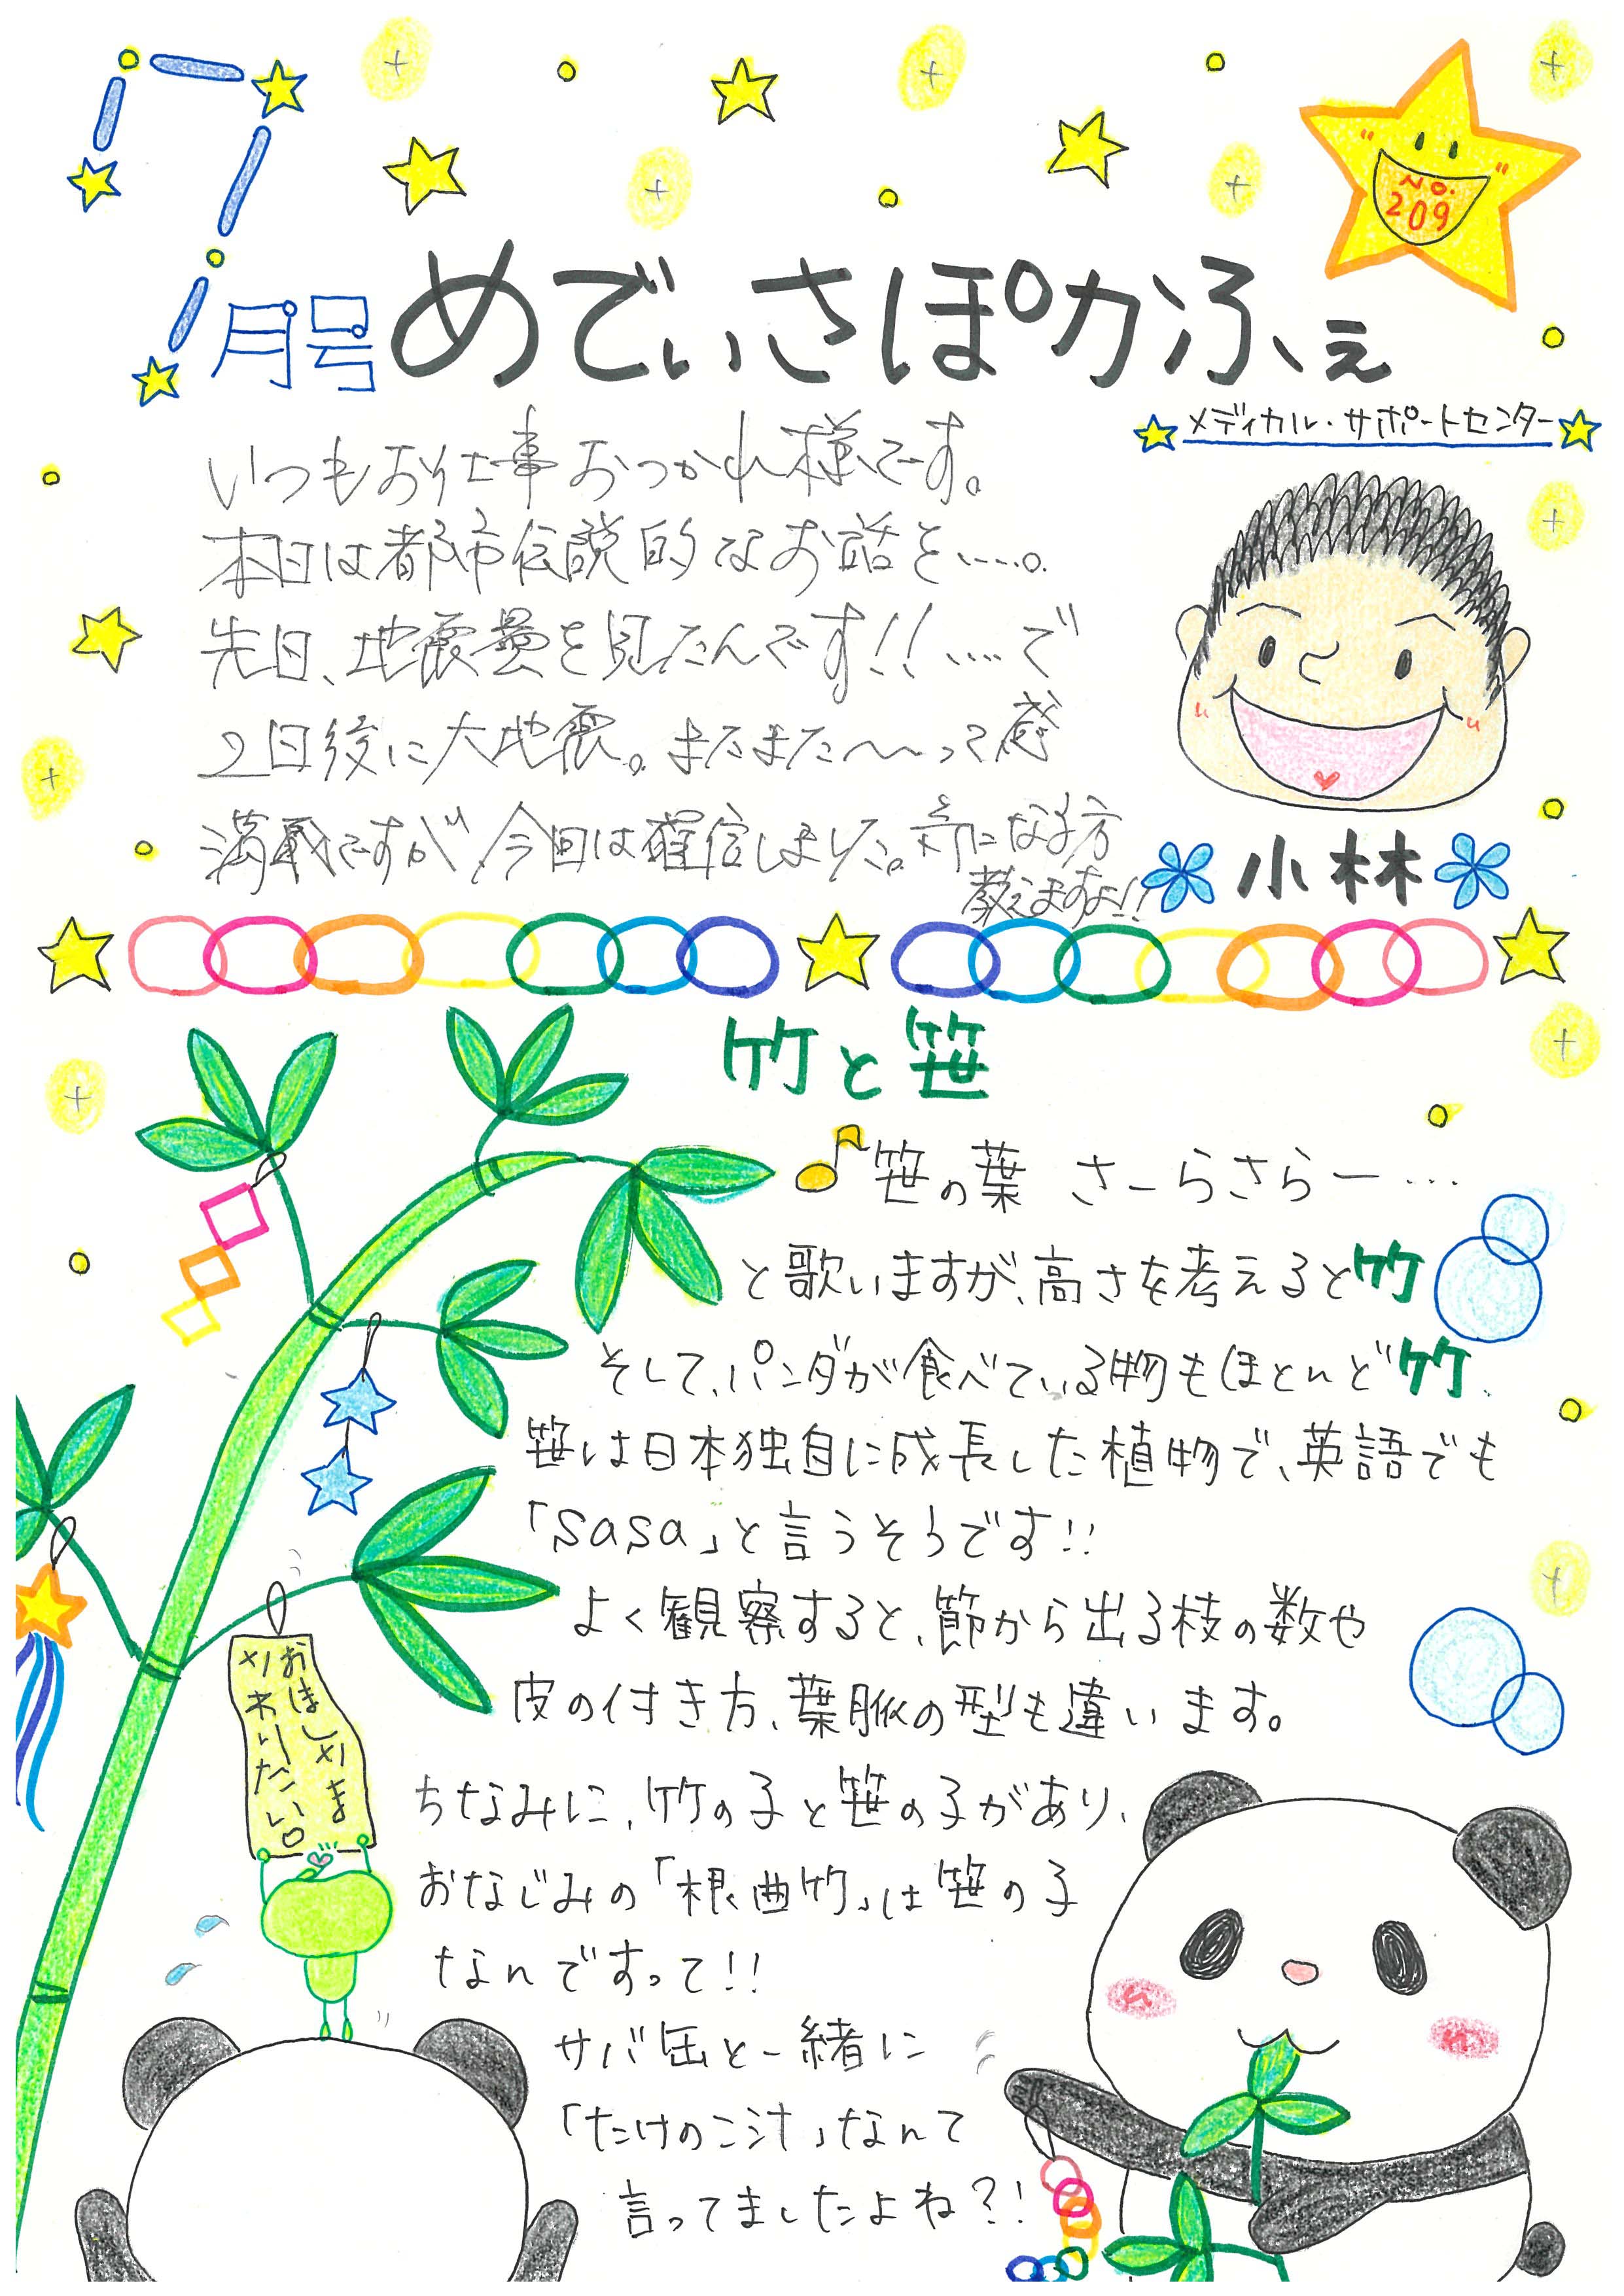 7月号
めでぃさぽかふぇ
No.
209
メディカル・サポートセンター
いつもお仕事おつかれ様です。
本日は都市伝説的なお話を……。
先日、地震雲を見たんです!!……で
2日後に大地震。またまた〜〜って感
満載ですが、今回は確信しました。気になる方
教えますよ!!
小林
竹と笹
♪笹の葉 さーらさらー…
と歌いますが、高さを考えると竹
そして、パンダが食べている物もほとんど竹.
笹は日本独自に成長した植物で、英語でも
「sasa」と言うそうです!!
よく観察すると、節から出る枝の数や
皮の付き方、葉脈の型も違います。
ちなみに、竹の子と笹の子があり、
おなじみの「根曲竹」は笹の子
なんですって!!
サバ缶と一緒に
「たけのこ汁」なんて
言ってましたよね?!
おほしさま
さわりたい。